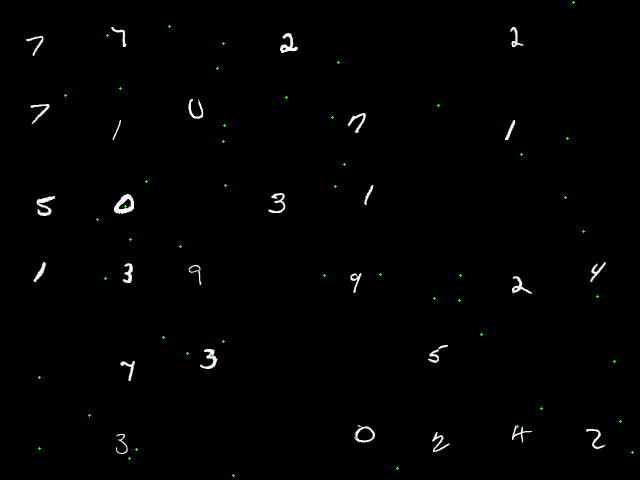 7 7 2 2
7 1 0 7 1
5 0 3 1
1 3 9 9 2 4
7 3 5
3 0 2 4 2